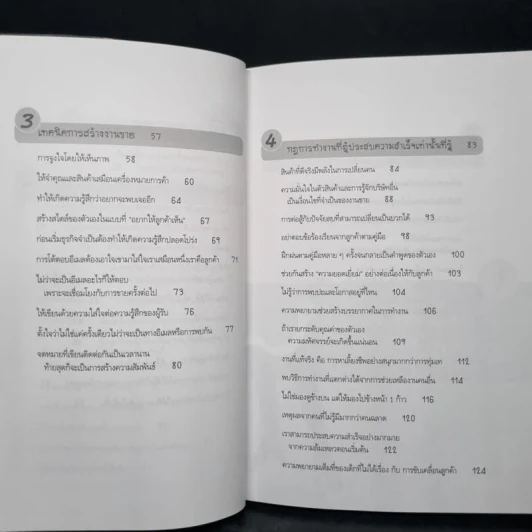 3
เทคนิคการสร้างงานขาย 57
การจูงใจโดยให้เห็นภาพ 58
ให้จำคุณและสินค้าเสมือนเครื่องหมายการค้า 60
ทำให้เกิดความรู้สึกว่าอยากจะพบเจออีก 64
สร้างสไตล์ของตัวเองในแบบที่ "อยากให้ลูกค้าเห็น" 67
ก่อนเริ่มธุรกิจจำเป็นต้องทำให้เกิดความรู้สึกปลอดโปร่ง 69
การโต้ตอบอีเมลต้องเอาใจเขามาใส่ใจเราเสมือนหนึ่งเราคือลูกค้า 71
ไม่ว่าจะเป็นอีเมลอะไรก็ให้ตอบ
เพราะจะเชื่อมโยงกับการขายครั้งต่อไป 73
ให้เขียนด้วยความใส่ใจต่อความรู้สึกของผู้รับ 76
ตั้งใจว่าไม่ใช่แค่ครั้งเดียวไม่ว่าจะเป็นทางอีเมลหรือการพบกัน 77
จดหมายที่เขียนติดต่อกันเป็นเวลานาน
ท้ายสุดก็จะเป็นการสร้างความสัมพันธ์ 80
4
กฎการทำงานที่ผู้ประสบความสำเร็จเท่านั้นที่รู้ 83
สินค้าที่ดีจริงมีพลังในการเปลี่ยนคน 84
ความมั่นใจในตัวสินค้าและการรู้จักบริษัทอื่น
เป็นเรื่องไขที่จำเป็นของงานขาย 88
การต่อสู้กับปัจจัยลบที่สามารถเปลี่ยนเป็นบวกได้ 93
อย่าตอบข้อร้องเรียนจากลูกค้าตามคู่มือ 98
ฝึกฝนตามคู่มือหลาย ๆ ครั้งจนกลายเป็นคำพูดของตัวเอง 100
ช่วยกันสร้าง "ความยอดเยี่ยม" อย่างต่อเนื่องให้กับลูกค้า 103
ไม่รู้ว่าการพบปะและโอกาสอยู่ที่ไหน 104
ความพยายามช่วยสร้างบรรยากาศในการทำงาน 106
ถ้าเรายกระดับคุณค่าของตัวเอง
ความมหัศจรรย์จะเกิดขึ้นแน่นอน 109
งานที่แท้จริง คือ การหาเลี้ยงชีพอย่างสนุกมากกว่าการทุ่มเท 112
พบวิธีการทำงานที่แตกต่างได้จากการช่วยเหลืองานคนอื่น 114
ไม่ใช่มองดูข้างบน แต่ให้มองไปข้างหน้า 1 ก้าว 116
เหตุผลจากคนที่ไม่รู้มีมากกว่าคนฉลาด 120
เราสามารถประสบความสำเร็จอย่างมากมาย
จากความล้มเหลวตอนเริ่มต้น 122
ความพยายามเต็มที่ของเด็กที่ไม่ได้เรื่อง กับ การขับเคลื่อนลูกค้า 124